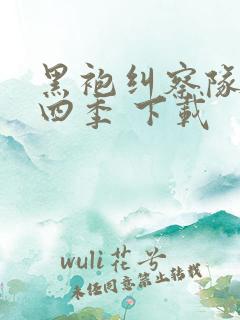 黑袍纠察队
四季 下载
wuli花兮
未经同意禁止转载